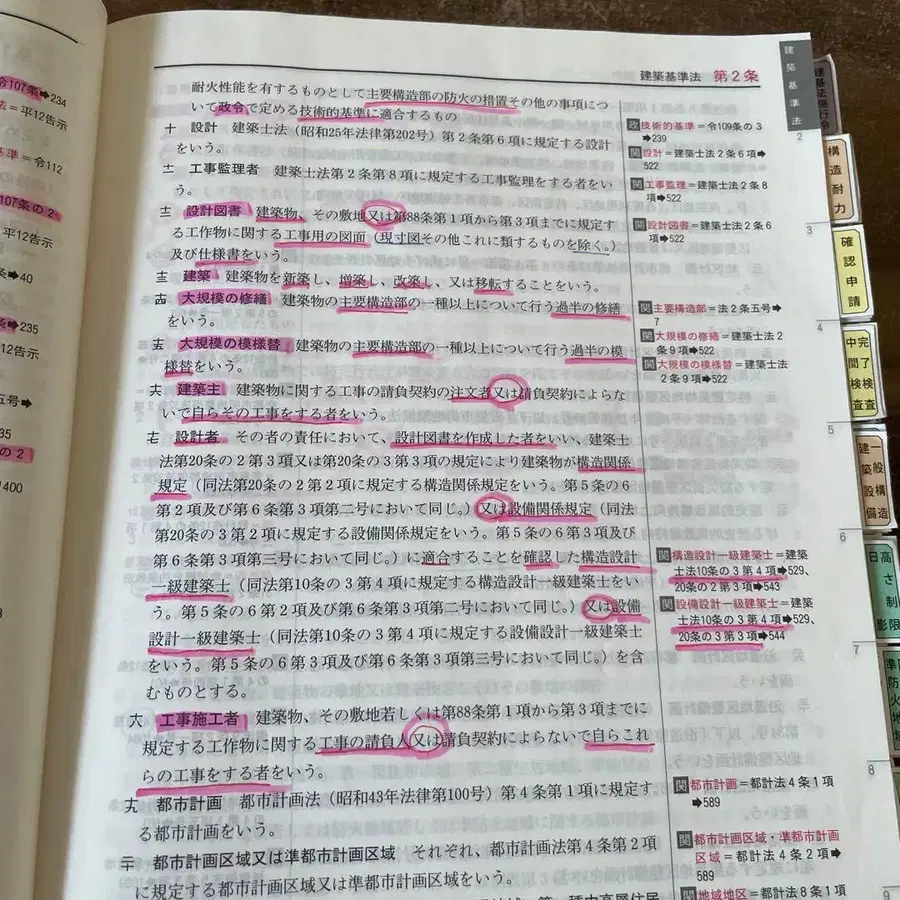 令107条➡234
法＝平12告示
基準＝令112
107条の2
平12告示
条➡40
条➡235
12告示
五号➡
35
の2
400
建築基準法 第2条
耐火性能を有するものとして主要構造部の防火の措置その他の事項につ
いて政令で定める技術的基準に適合するもの
十 設計 建築士法（昭和25年法律第202号）第2条第6項に規定する設計
をいう。
十一 工事監理者 建築士法第2条第8項に規定する工事監理をする者をい
う。
十二 設計図書 建築物、その敷地又は第88条第1項から第3項までに規定す
る工作物に関する工事用の図面（現寸図その他これに類するものを除く。）
及び仕様書をいう。
十三 建築 建築物を新築し、増築し、改築し、又は移転することをいう。
十四 大規模の修繕 建築物の主要構造部の一種以上について行う過半の修繕
をいう。
十五 大規模の模様替 建築物の主要構造部の一種以上について行う過半の模
様替をいう。
十六 建築主 建築物に関する工事の請負契約の注文者又は請負契約によらな
いで自らその工事をする者をいう。
十七 設計者 その者の責任において、設計図書を作成した者をいい、建築士
法第20条の2第3項又は第20条の3第3項の規定により建築物が構造関係
規定（同法第20条の2第2項に規定する構造関係規定をいう。第5条の6
第2項及び第6条第3項第二号において同じ。）又は設備関係規定（同法
第20条の3第2項に規定する設備関係規定をいう。第5条の6第3項及び
第6条第3項第三号において同じ。）に適合することを確認した構造設計
一級建築士（同法第10条の3第4項に規定する構造設計一級建築士をい
う。第5条の6第2項及び第6条第3項第二号において同じ。）又は設備
設計一級建築士（同法第10条の3第4項に規定する設備設計一級建築士
をいう。第5条の6第3項及び第6条第3項第三号において同じ。）を含
むものとする。
十八 工事施工者 建築物、その敷地若しくは第88条第1項から第3項までに
規定する工作物に関する工事の請負人又は請負契約によらないで自らこれ
らの工事をする者をいう。
十九 都市計画 都市計画法（昭和43年法律第100号）第4条第1項に規定す
る都市計画をいう。
二十 都市計画区域又は準都市計画区域 それぞれ、都市計画法第4条第2項
に規定する都市計画区域又は準都市計画区域をいう。
政 技術的基準＝令109条の3
➡239
関 設計＝建築士法2条6項➡
522
関 工事監理＝建築士法2条8
項➡522
関 設計図書＝建築士法2条6
項➡522
関 主要構造部＝法2条五号➡
7
関 大規模の修繕＝建築士法2
条9項➡522
関 大規模の模様替＝建築士法
2条9項➡522
関 構造設計一級建築士＝建築
士法10条の3第4項➡529、
20条の2第3項➡543
関 設備設計一級建築士＝建築
士法10条の3第4項➡529、
20条の3第3項➡544
関 都市計画＝都計法4条1項
➡589
関 都市計画区域・準都市計画
区域＝都計法4条2項➡
589
関 地域地区＝都計法8条1項
建築基準法
2
3
4
5
6
7
8
9
構造耐力
確認申請
中間検査
完了検査
建築設備
一般構造